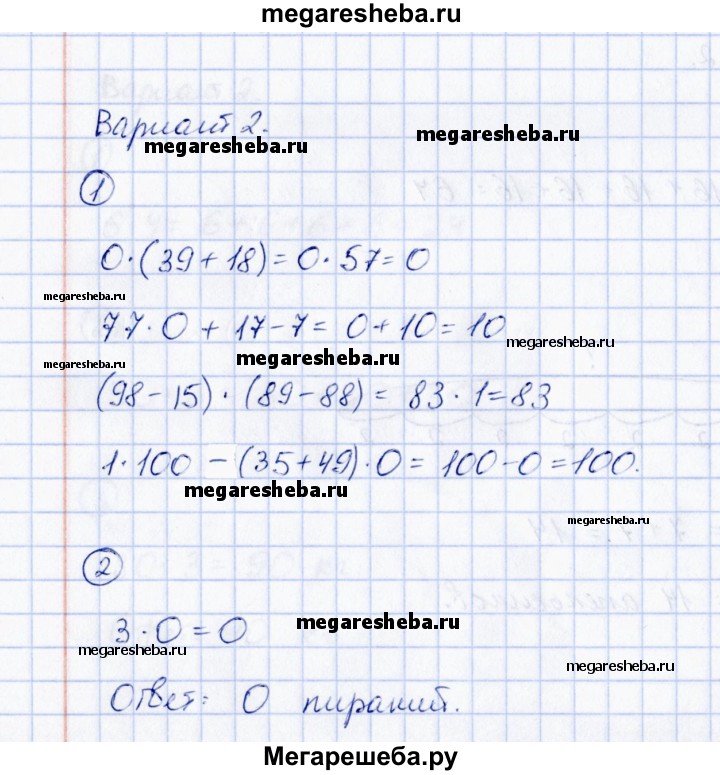 megaresheba.ru
Вариант 2.
megaresheba.ru
megaresheba.ru
1
0·(39+18)=0·57=0
megaresheba.ru
77·0+17-7=0+10=10
megaresheba.ru
megaresheba.ru
megaresheba.ru
(98-15)·(89-88)=83·1=83
1·100-(35+49)·0=100-0=100.
megaresheba.ru
megaresheba.ru
2
3·0=0
megaresheba.ru
megaresheba.ru
megaresheba.ru
Ответ: 0 пираний.
Мегарешеба.ру